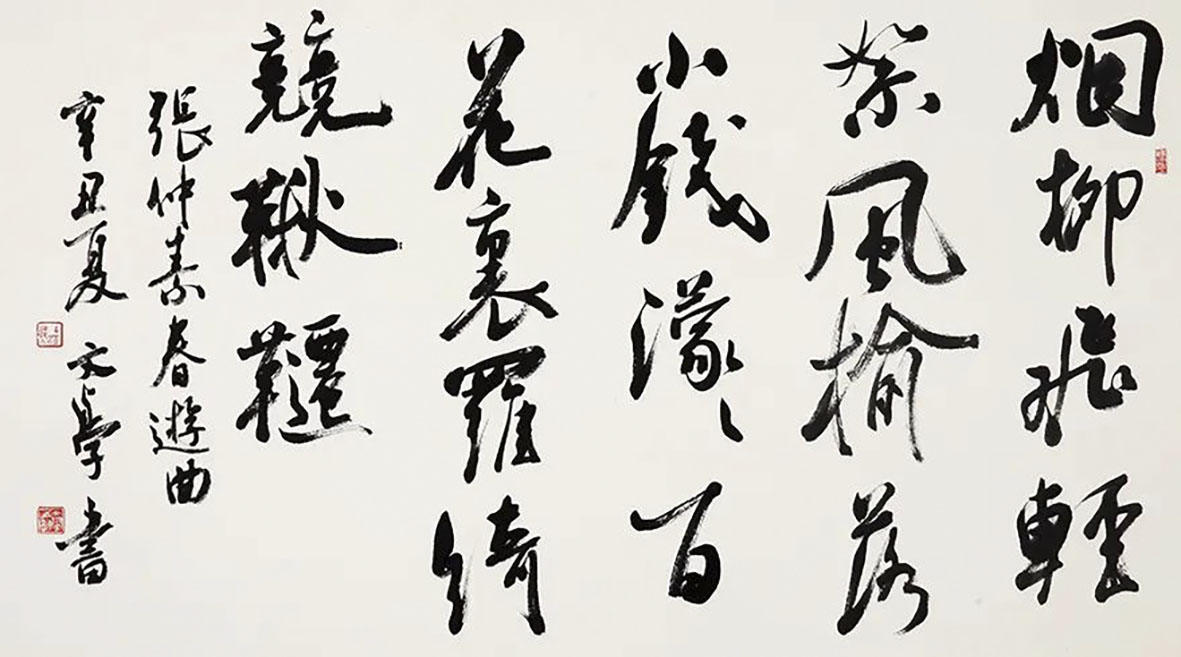 烟柳飛輕
絮風榆落
小錢濛〻百
花裏羅綺
競鞦韆
張仲素春遊曲
辛丑夏 文學書